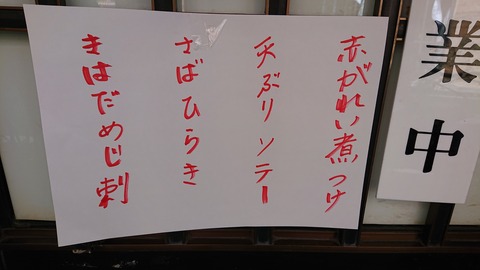 赤がれい煮つけ
天ぶりソテー
さばひらき
きはだめじ刺
業中